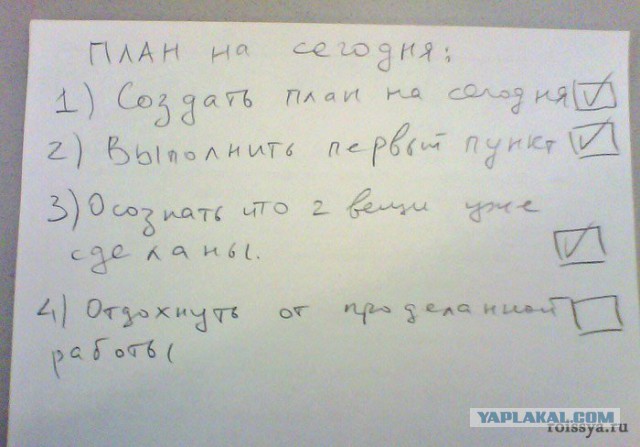 ПЛАН на сегодня:
1) Создать план на сегодня
2) Выполнить первый пункт
3) Осознать что 2 вещи уже
сделаны.
4) Отдохнуть от проделанной
работы
YAPLAKAL.COM
roissya.ru